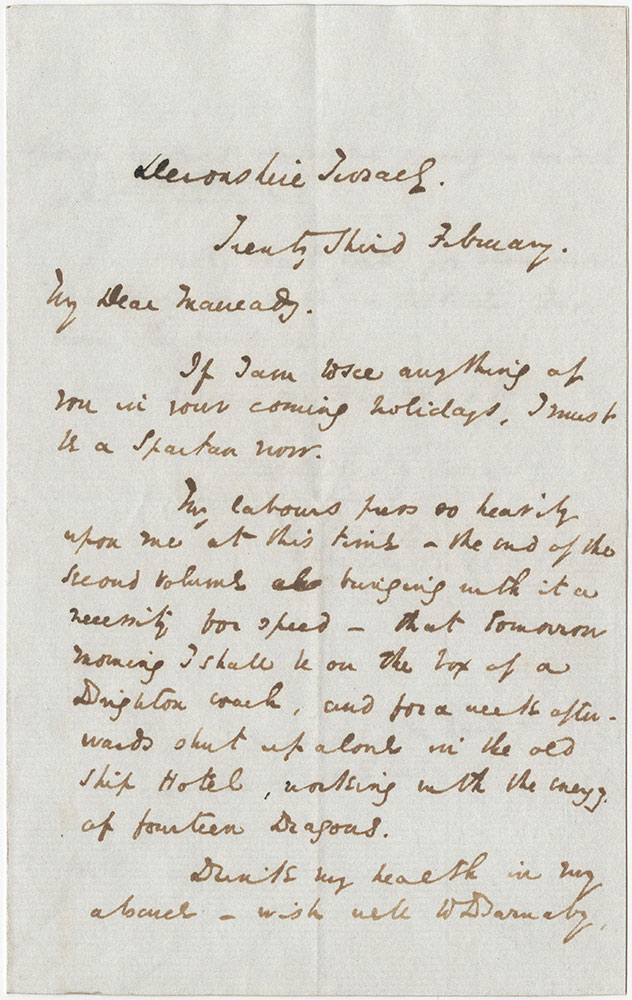 Devonshire Terrace.
Twenty Third February.
My Dear Macready.
If I am to see anything of
you in your coming holidays, I must
be a Spartan now.
My labours press so heavily
upon me at this time – the end of the
second volume bringing with it a
necessity for speed – that tomorrow
morning I shall be on the box of a
Brighton coach, and for a week after-
wards shut up alone in the old
Ship Hotel, working with the energy
of fourteen Dragons.
Drink my health in my
absence – wish well to Barnaby,